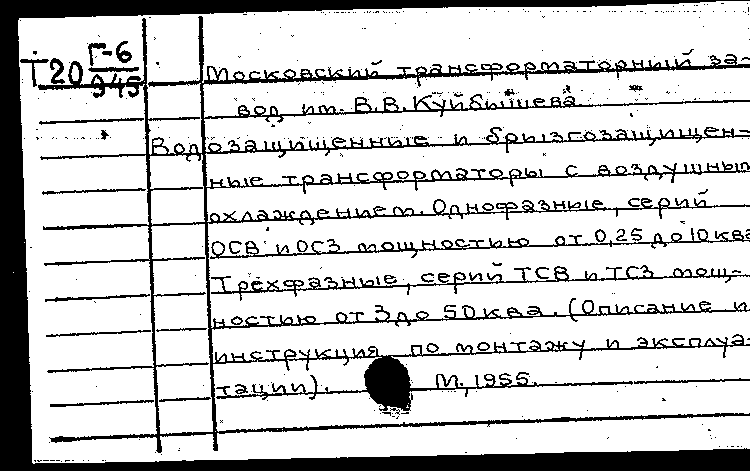 Т20 Г-6
945
Московский трансформаторный за-
вод им. В.В. Куйбышева
Водозащищенные и брызгозащищен-
ные трансформаторы с воздушным
охлаждением. Однофазные, серий
ОСВ и ОСЗ мощностью от 0,25 до 10 ква
Трехфазные, серий ТСВ и ТСЗ мощ-
ностью от 3 до 50 ква. (Описание и
инструкция по монтажу и эксплуа-
тации). М., 1955.